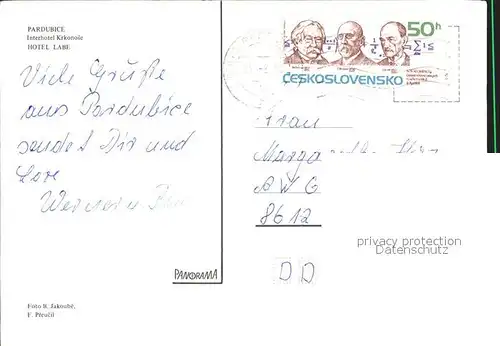 PARDUBICE
Interhotel Krkonoše
HOTEL LABE
Viele Grüße
aus Pardubice
sendet Dir und
Lore
Werner u.
50h
ČESKOSLOVENSKO
Frau
AWG
8612
privacy protection
Datenschutz
DD
PANORAMA
Foto B. Jakoubě,
F. Přeučil